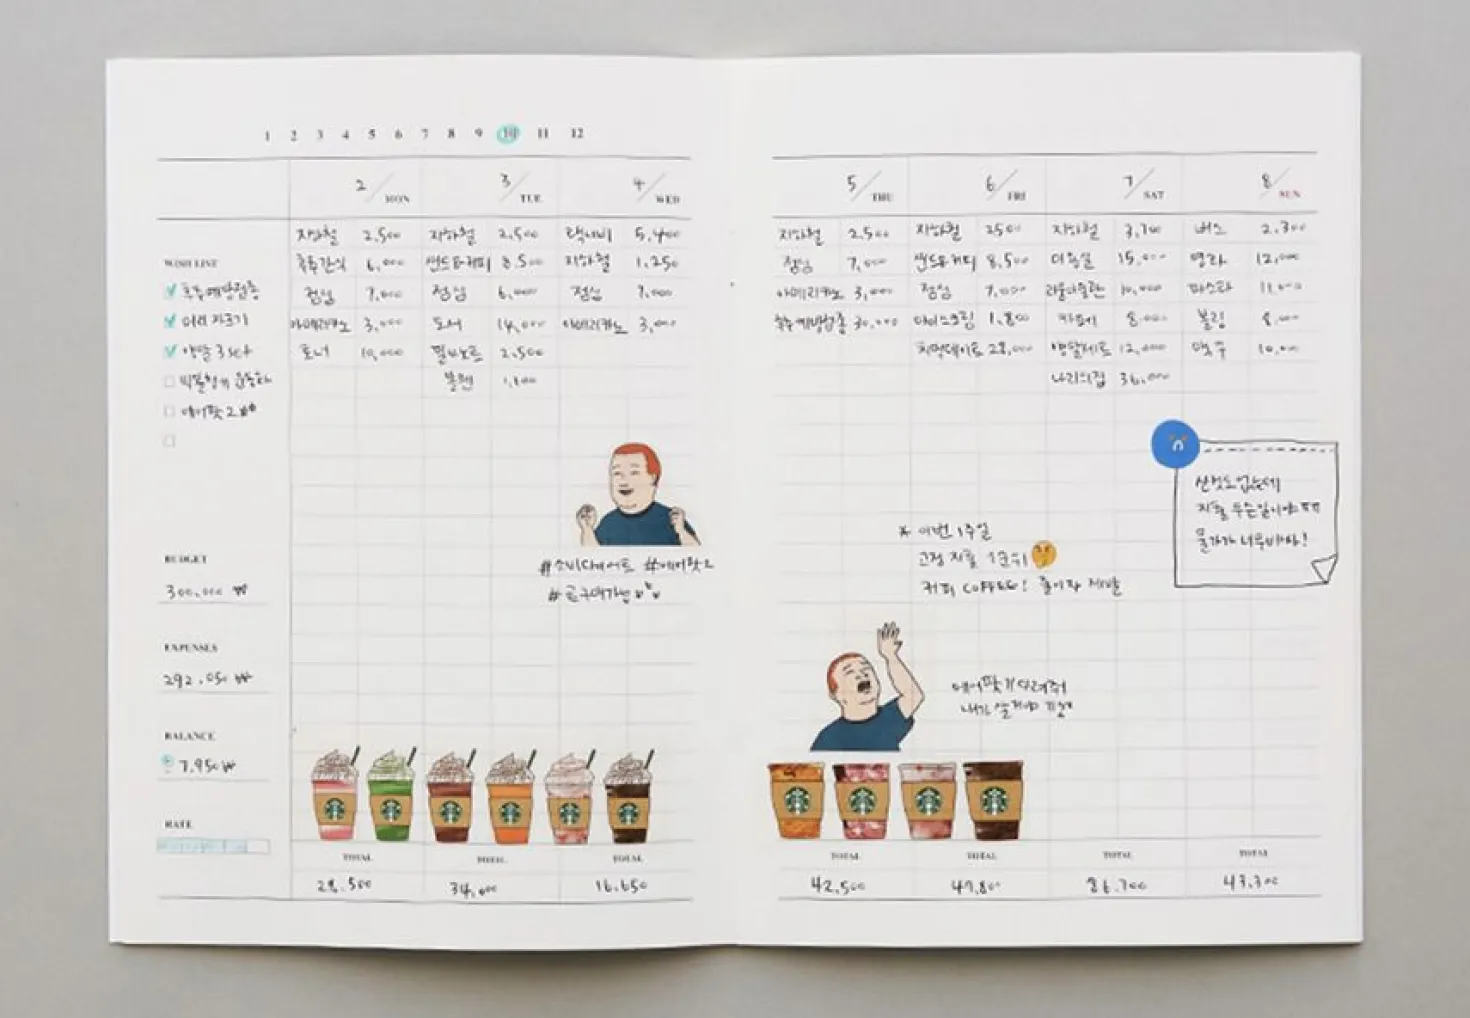 1 2 3 4 5 6 7 8 9 10 11 12
2 MON
3 TUE
4 WED
5 THU
6 FRI
7 SAT
8 SUN
WISH LIST
독감예방접종
머리 자르기
양말 3set
에어팟 2
BUDGET
300,000 ₩
EXPENSES
292,050 ₩
BALANCE
7,950 ₩
RATE
지하철 2,500
6,000
점심 7,000
아메리카노 3,000
토너 10,000
지하철 2,500
샌드&커피 8,500
점심 6,000
도서 14,000
2,500
볼펜
택시비 5,400
지하철 1,250
점심 7,000
아메리카노 3,000
지하철 2,500
점심 7,000
아메리카노 3,000
독감예방접종 30,000
지하철 2500
샌드&커피 8,500
점심 7,000
아이스크림 1,800
치맥데이트 28,000
지하철 3,700
미용실 15,000
10,000
카페 8,000
양말세트 12,000
나리의집 36,000
버스 2,300
영화 12,000
파스타 11,000
볼링 8,000
맥주 10,000
#소비다이어트 #에어팟2
* 이번 1주일
고정 지출 1순위
커피 COFFEE! 줄이자 제발
산것도 없는데
지출 무슨일이야 ㅠㅠ
물가가 너무비싸!
에어팟 기다려줘
내가 살거야 기필
TOTAL
28,500
TOTAL
34,600
TOTAL
16,650
TOTAL
42,500
TOTAL
47,800
TOTAL
86,700
TOTAL
43,300